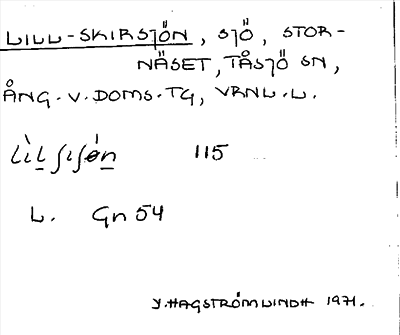 LILL-SKIRSJÖN, SJÖ, STOR-
NÄSET, TÅSJÖ SN,
ÅNG. V. DOMS. TG, VRNL. L.
115
L. Gn 54
Y. HAGSTRÖM LINDH 1971.